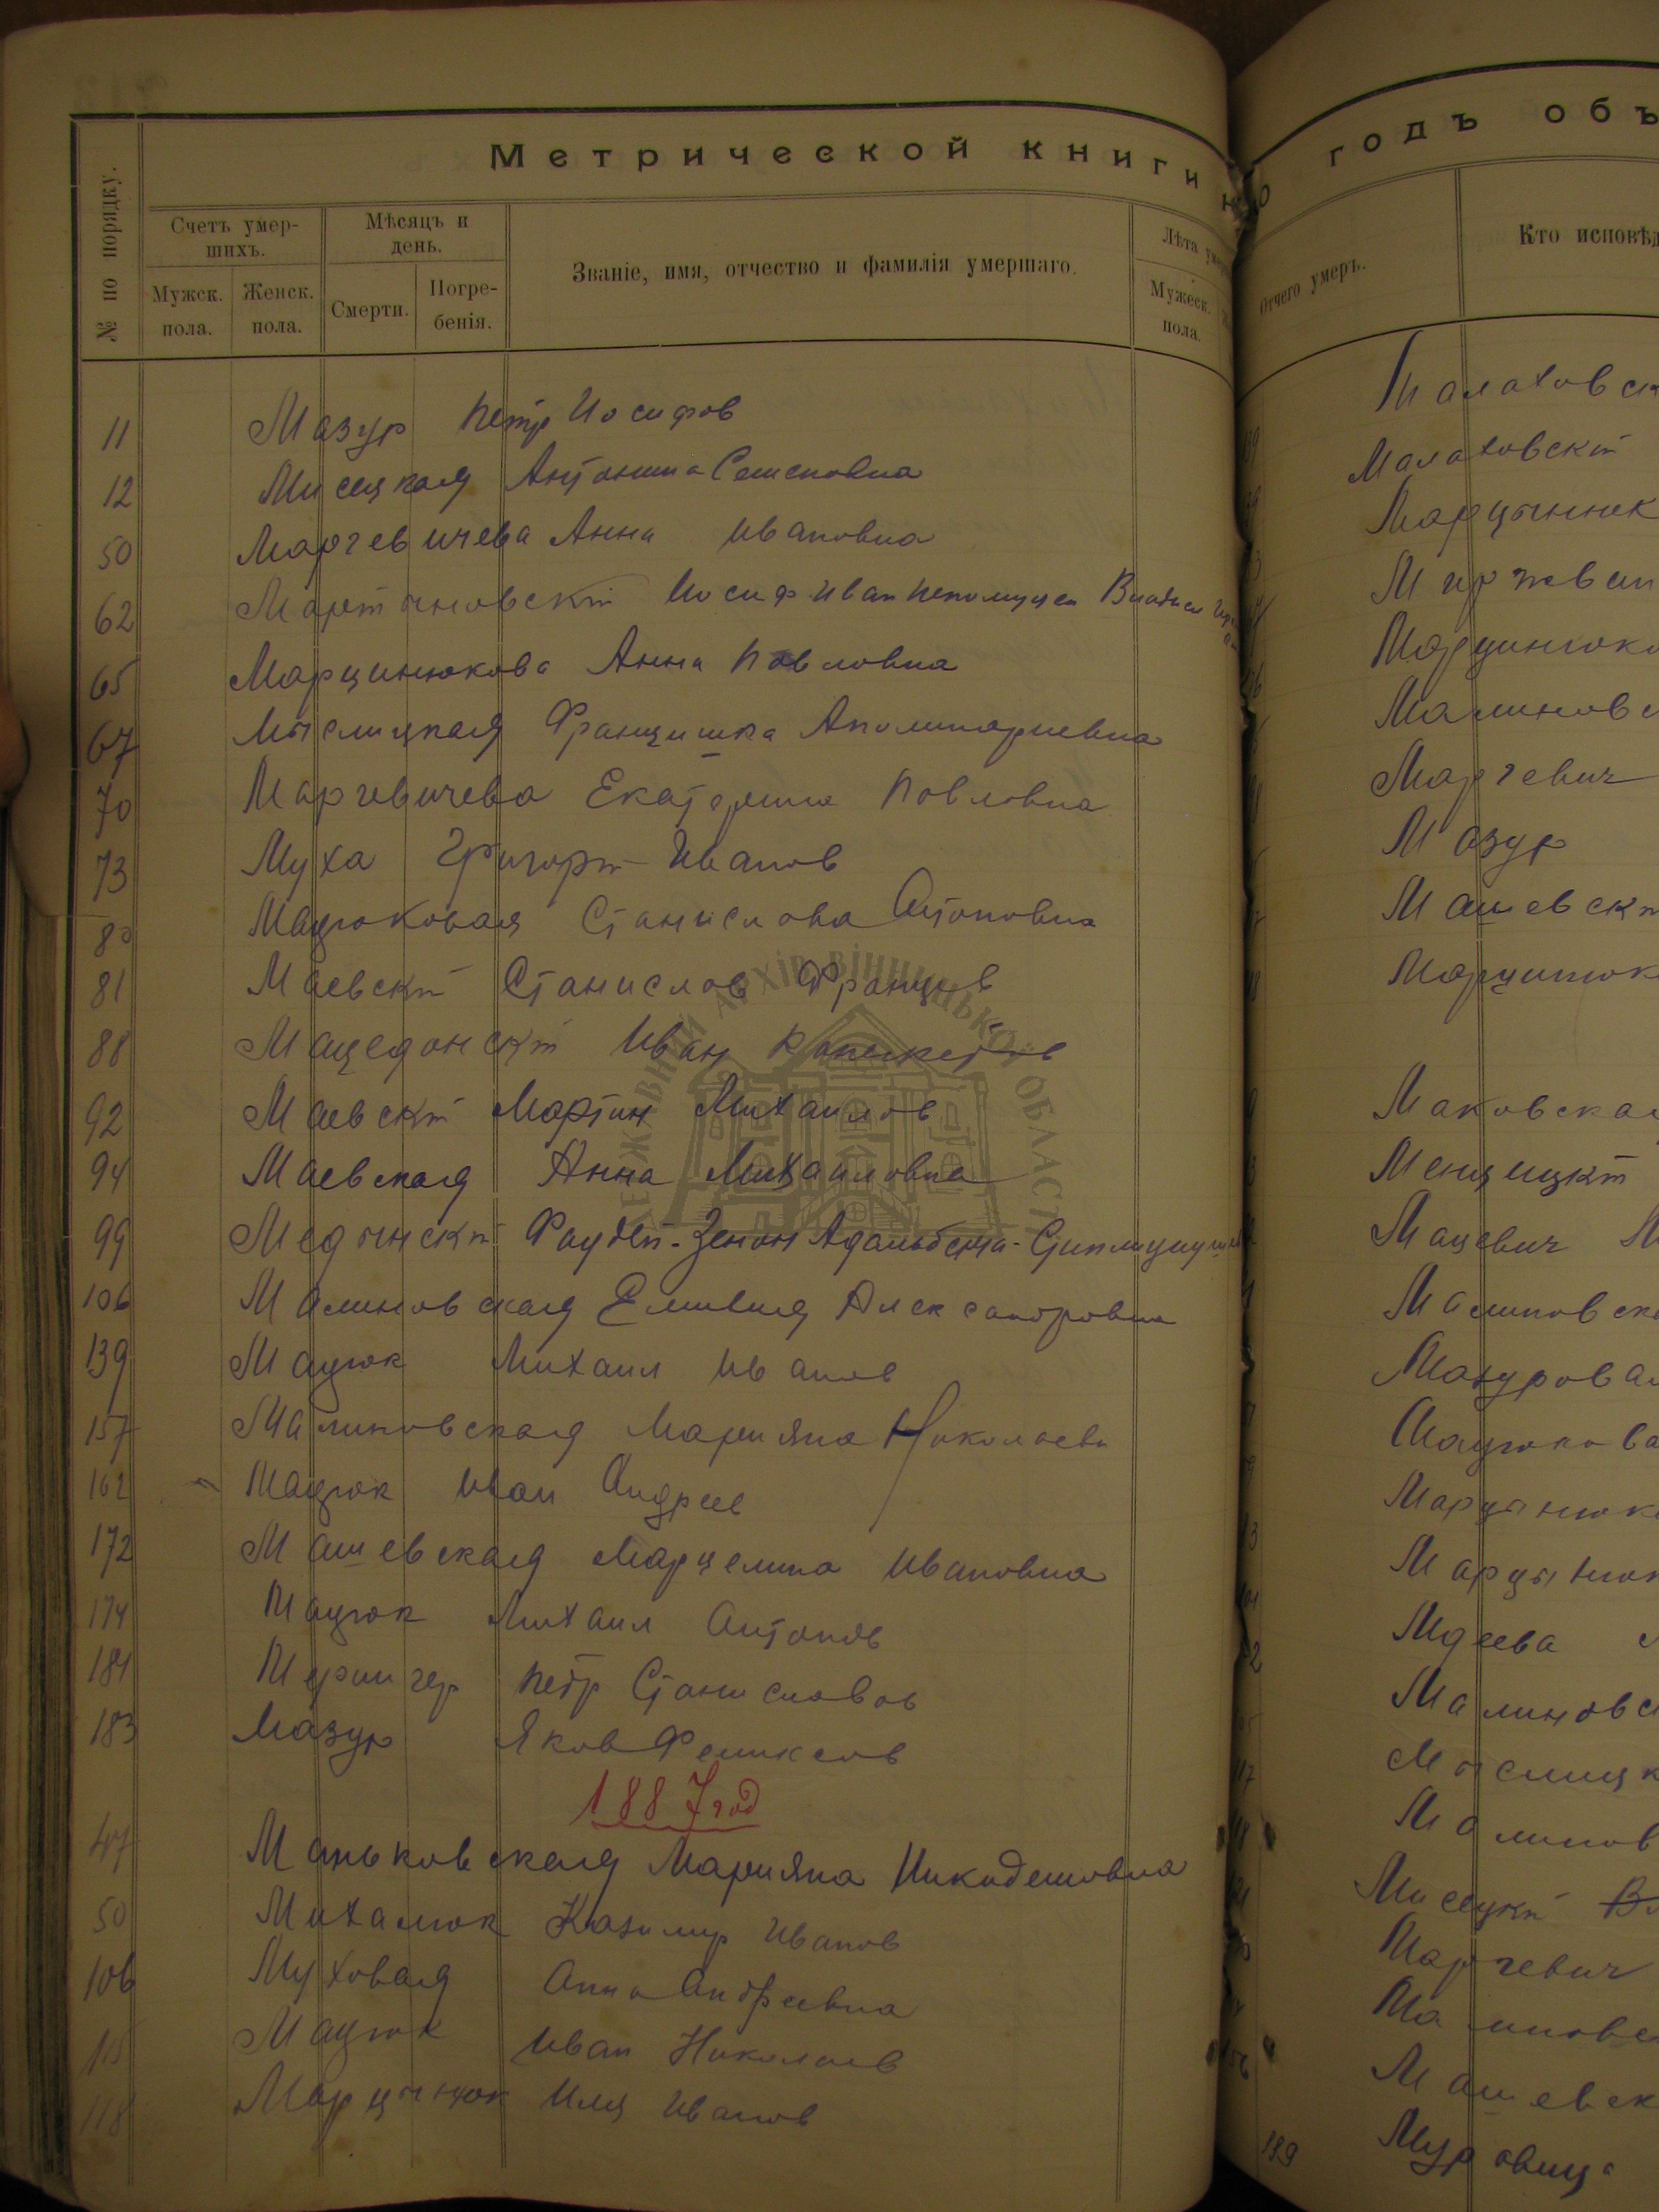 Метрической книги
годъ объ
№ по порядку.
Счетъ умер-
шихъ.
Мѣсяцъ и
день.
Званіе, имя, отчество и фамилія умершаго.
Лѣта
Мужск.
пола.
Женск.
пола.
Смерти.
Погре-
бенія.
Мужеск.
пола.
Отчего умеръ.
Кто исповѣд
11 Мазур Петр Иосифов
12 Мисецкая Антонина Семеновна
50 Марчевичева Анна Ивановна
62 Мартыновскій Иосиф Иван Непомуцен
65 Марцинюкова Анна Павловна
67 Мыслицкая Францишка Аполинариевна
70 Марчевичева Екатерина Павловна
73 Муха Григорій Иванов
80 Мацюковая Станислава Антоновна
81 Маевскій Станислав Францов
88 Мацедонскій Иван
92 Маевскій Мартин Михаилов
94 Маевская Анна Михаиловна
99 Медынскій Зенон
106 Малиновская Емилия Александровна
139 Мацюк Михаил Иванов
157 Малиновская Марияна Николаевн
162 Мацюк Иван Андреев
172 Машевская Марцелина Ивановна
174 Мацюк Михаил Антонов
181 Петр Станиславов
183 Мазур Яков Феликсов
1887 год
47 Маньковская Марияна Никодемовна
50 Михалюк Казимир Иванов
106 Муховая Анна Андреевна
115 Мацюк Иван Николаев
118 Марцынюк Илия Иванов
Малаховск
Малаховскій
Марцынюк
Марцинюко
Малиновс
Марчевич
Мазур
Машевскі
Марцинюк
Маковская
Менцицкій
Мацевич
Малиновска
Мазурова
Мацюкова
Марцынюк
Марцынюк
Малиновс
Мыслицк
Малинов
Мисецкій
Марчевич
Малиновс
Машевск
139
ДЕРЖАВНИЙ АРХІВ ВІННИЦЬКОЇ ОБЛАСТІ